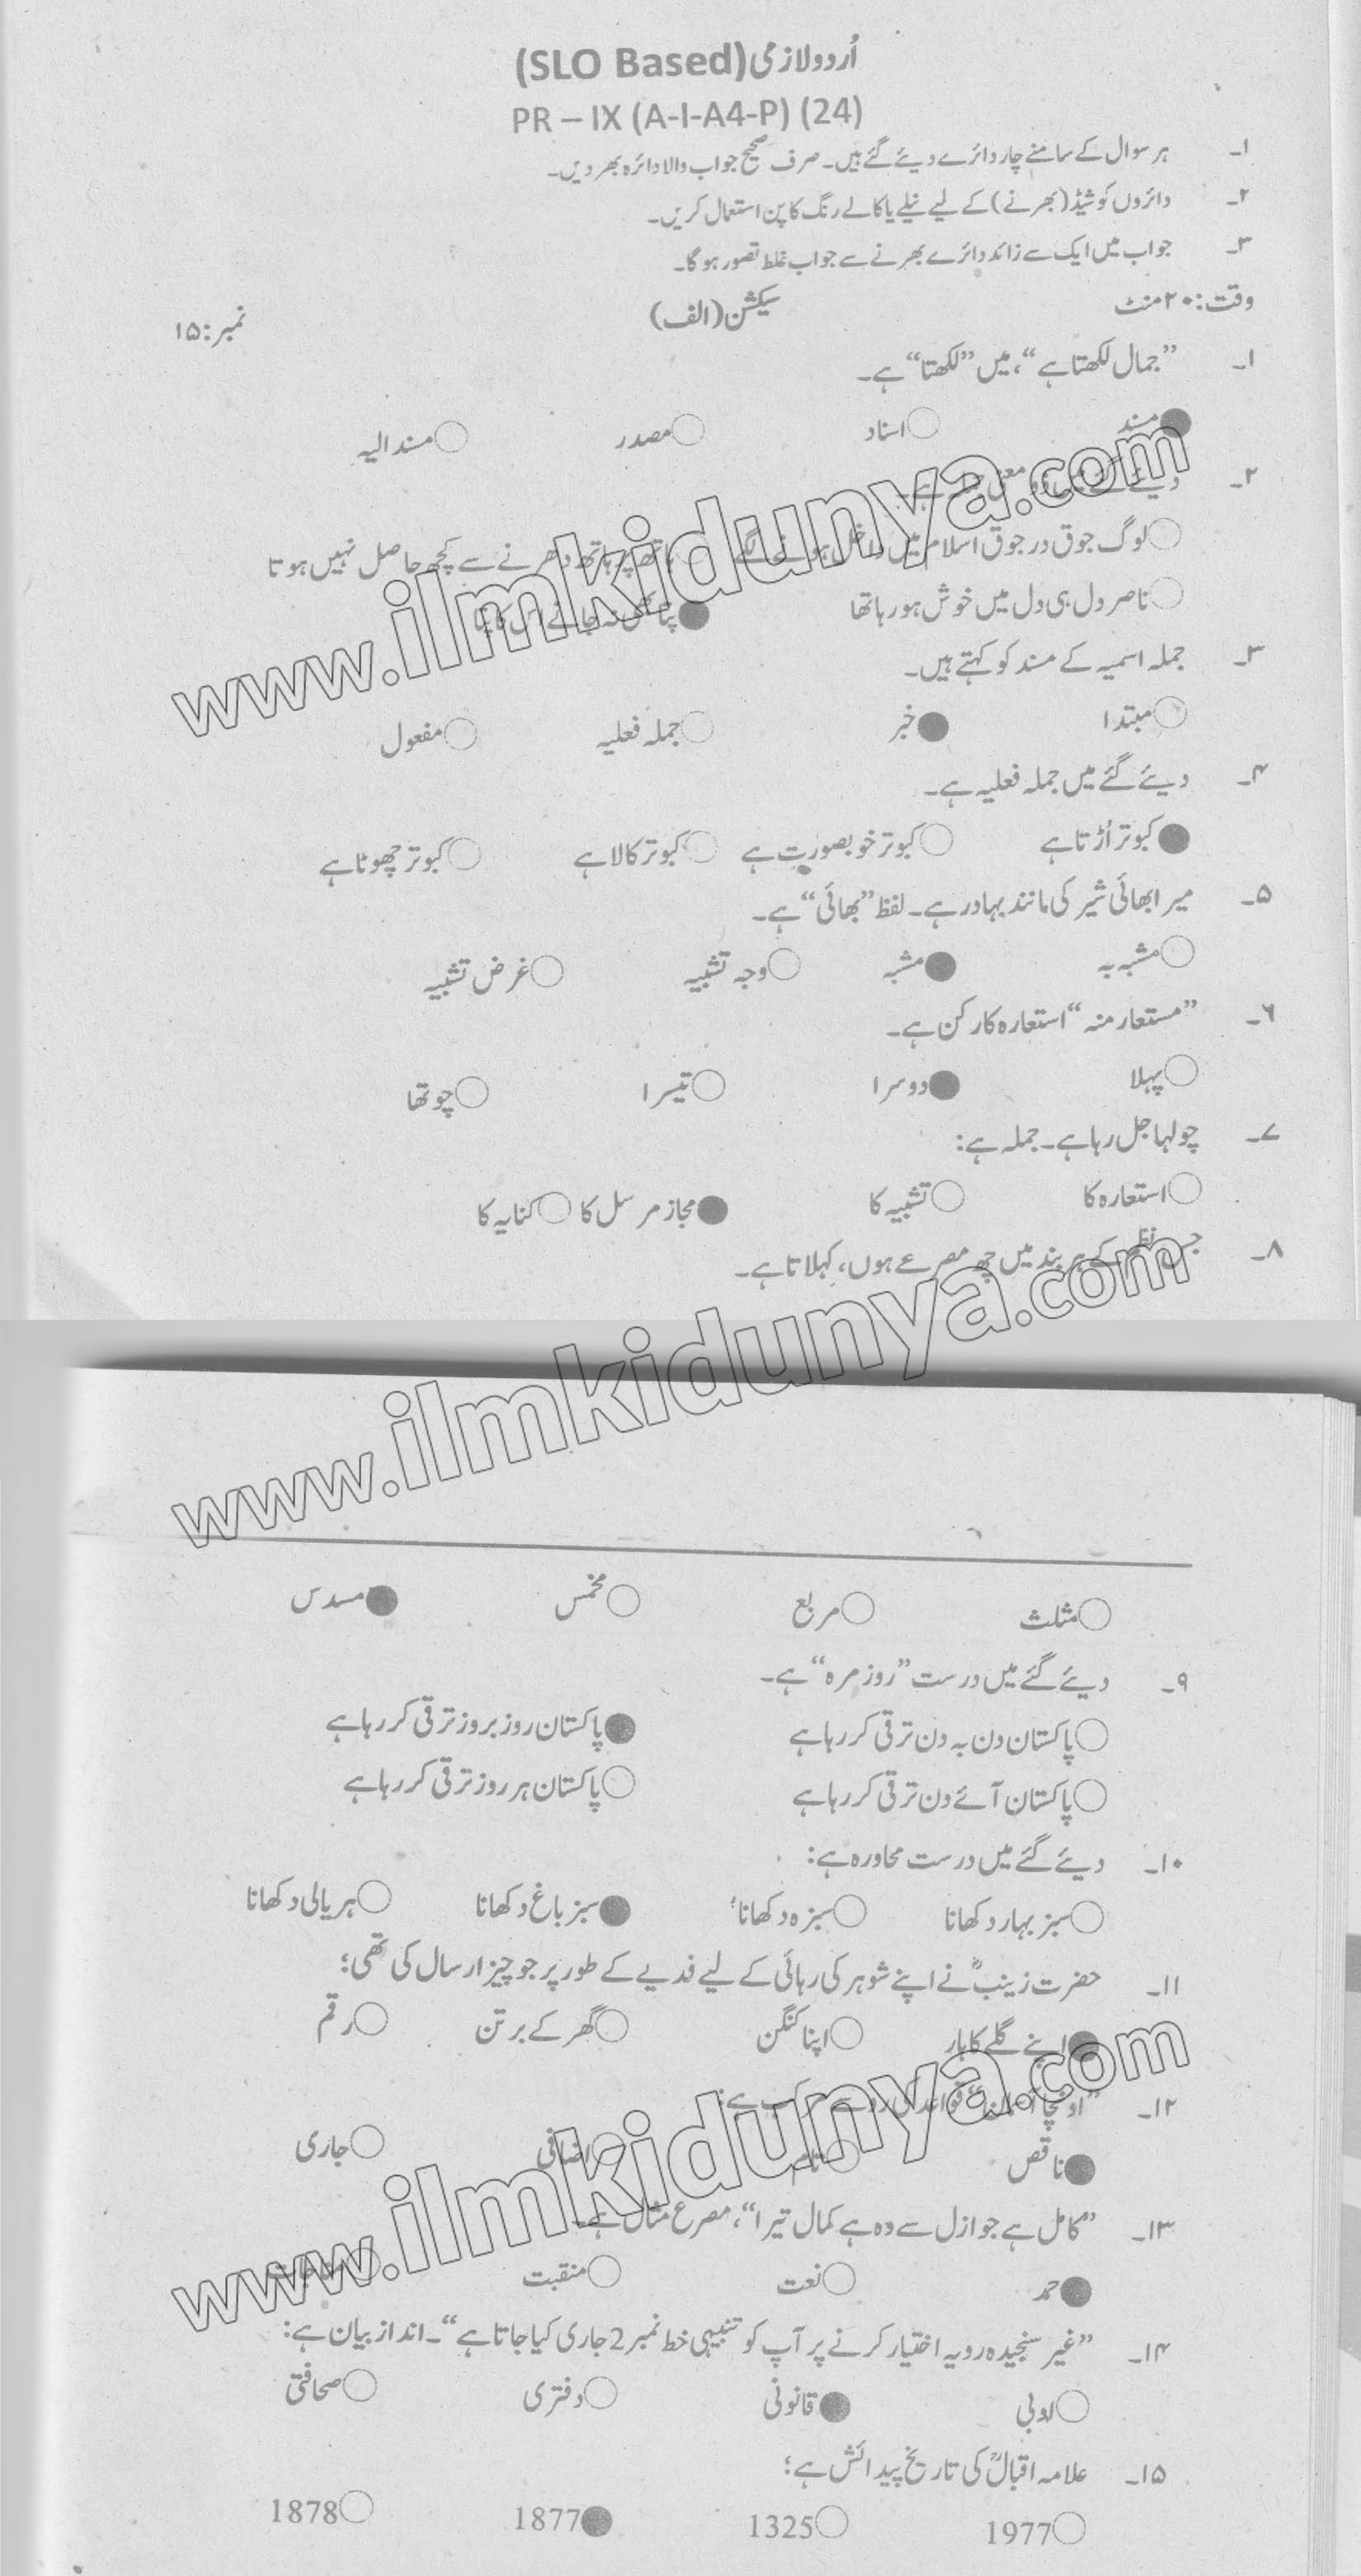 اُردو لازمی (SLO Based)
PR – IX (A-I-A4-P) (24)
۱۔ ہر سوال کے سامنے چار دائرے دیئے گئے ہیں۔ صرف صحیح جواب والا دائرہ بھر دیں۔
۲۔ دائروں کو شیڈ (بھرنے) کے لیے نیلے یا کالے رنگ کا پن استعمال کریں۔
۳۔ جواب میں ایک سے زائد دائرے بھرنے سے جواب غلط تصور ہوگا۔
وقت: ۲۰ منٹ سیکشن (الف) نمبر: ۱۵
۱۔ ”جمال لکھتا ہے“، میں ”لکھتا“ ہے۔
مسند اسناد مصدر مسند الیہ
۲۔ دیئے گئے میں ہے۔
لوگ جوق در جوق اسلام میں داخل ہونے لگے ہاتھ پر ہاتھ دھرنے سے کچھ حاصل نہیں ہوتا
ناصر دل ہی دل میں خوش ہو رہا تھا
۳۔ جملہ اسمیہ کے مسند کو کہتے ہیں۔
مبتدا خبر جملہ فعلیہ مفعول
۴۔ دیئے گئے میں جملہ فعلیہ ہے۔
کبوتر اُڑتا ہے کبوتر خوبصورت ہے کبوتر کالا ہے کبوتر چھوٹا ہے
۵۔ میرا بھائی شیر کی مانند بہادر ہے۔ لفظ ”بھائی“ ہے۔
مشبہ بہ مشبہ وجہ تشبیہ غرض تشبیہ
۶۔ ”مستعار منہ“ استعارہ کا رکن ہے۔
پہلا دوسرا تیسرا چوتھا
۷۔ چولہا جل رہا ہے۔ جملہ ہے:
استعارہ کا تشبیہ کا مجاز مرسل کا کنایہ کا
۸۔ جس نظم کے ہر بند میں چھ مصرعے ہوں، کہلاتا ہے۔
مثلث مربع مخمس مسدس
۹۔ دیئے گئے میں درست ”روزمرہ“ ہے۔
پاکستان دن بہ دن ترقی کر رہا ہے پاکستان روز بروز ترقی کر رہا ہے
پاکستان آئے دن ترقی کر رہا ہے پاکستان ہر روز ترقی کر رہا ہے
۱۰۔ دیئے گئے میں درست محاورہ ہے:
سبز بہار دکھانا سبزہ دکھانا سبز باغ دکھانا ہریالی دکھانا
۱۱۔ حضرت زینبؓ نے اپنے شوہر کی رہائی کے لیے فدیے کے طور پر جو چیز ارسال کی تھی؛
اپنے گلے کا ہار اپنا کنگن گھر کے برتن رقم
۱۲۔ ”اونچا قواعد کی رو سے مرکب ہے:
ناقص تام اضافی جاری
۱۳۔ ”کامل ہے جو ازل سے وہ ہے کمال تیرا“، مصرع مثال ہے۔
حمد نعت منقبت
۱۴۔ ”غیر سنجیدہ رویہ اختیار کرنے پر آپ کو تنبیہی خط نمبر 2 جاری کیا جاتا ہے“۔ انداز بیان ہے:
ادبی قانونی دفتری صحافتی
۱۵۔ علامہ اقبالؒ کی تاریخ پیدائش ہے؛
1977 1325 1877 1878
www.ilmkidunya.com
www.ilmkidunya.com
www.ilmkidunya.com